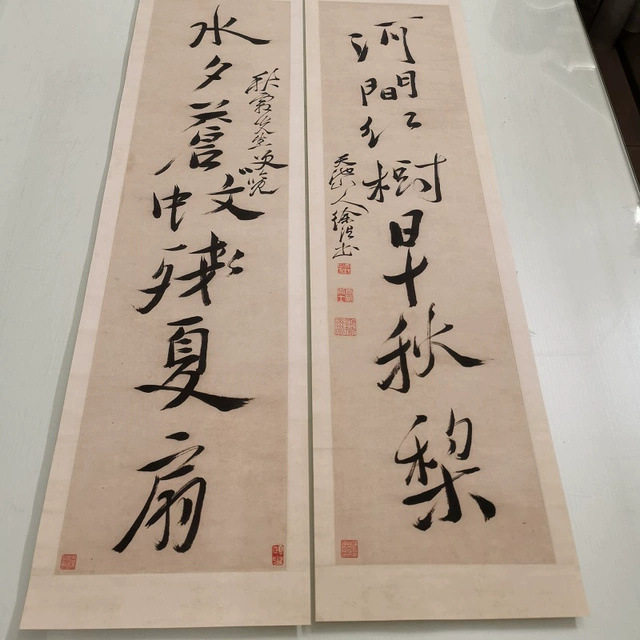 河間紅樹早秋梨
天池山人徐渭書
水夕蒼蚊殘夏扇